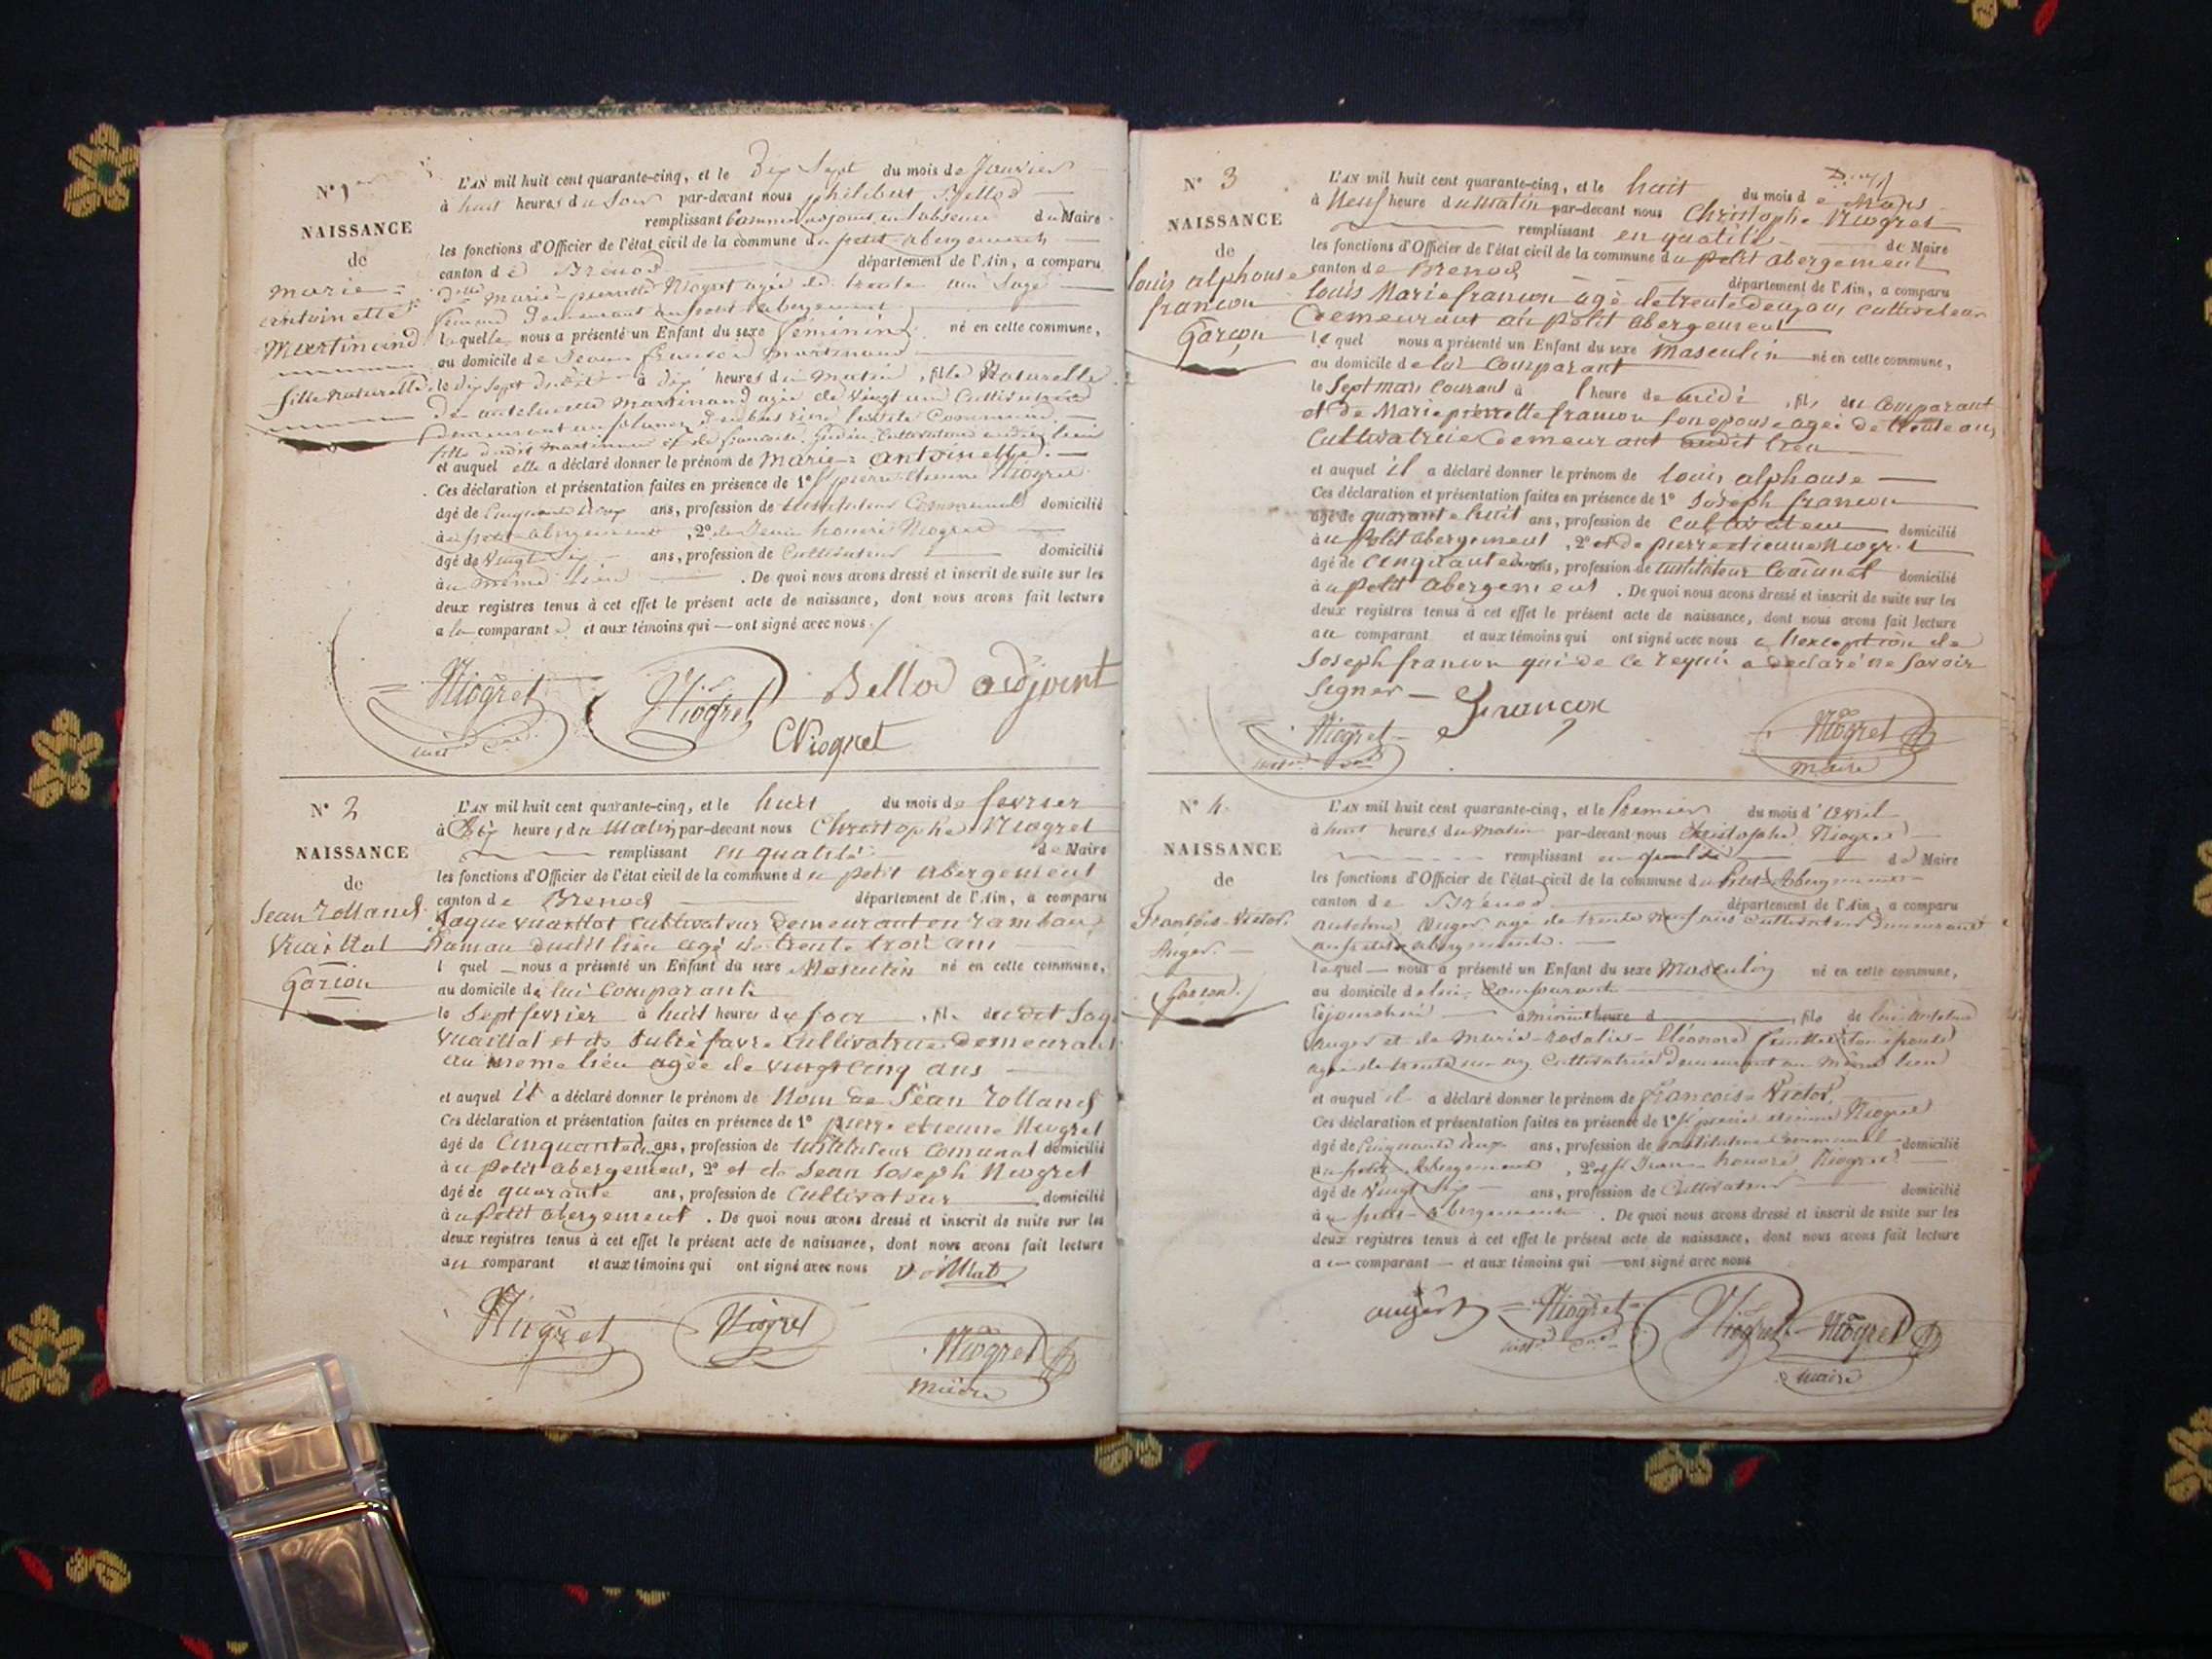 N° 1er
NAISSANCE
de
marie =
antoinette
Martinand
fille naturelle
L'AN mil huit cent quarante-cinq, et le Dix Sept du mois de Janvier
à huit heures du Soir par-devant nous philibert Bellod
remplissant Comme adjoint en l'absence du Maire
les fonctions d'Officier de l'état civil de la commune du petit abergement
canton de Brénod département de l'Ain, a comparu
dlle Marie pierrette Niogret agée de trente ans Sage
femme Demeurant au petit abergement
laquelle nous a présenté un Enfant du sexe féminin né en cette commune,
au domicile de Jean françois Martinand
le dix sept du à dix heures du matin, fille Naturelle
de Martinand agée de vingt ans Cultivatrice
Demeurant
fille dudit Martinand et de françoise
et auquel elle a déclaré donner le prénom de Marie = antoinette. —
Ces déclaration et présentation faites en présence de 1° Sr pierre etienne Niogret
âgé de Cinquante deux ans, profession de instituteur Communal domicilié
au petit abergement, 2° de Jean honoré Niogret
âgé de vingt Six ans, profession de Cultivateur domicilié
au même lieu. De quoi nous avons dressé et inscrit de suite sur les
deux registres tenus à cet effet le présent acte de naissance, dont nous avons fait lecture
a la comparante et aux témoins qui — ont signé avec nous
Niogret Niogret Bellod adjoint
CNiogret
N° 2
NAISSANCE
de
Jean Rolland
Vuaillat
Garçon
L'AN mil huit cent quarante-cinq, et le huit du mois de fevrier
à Dix heures du Matin par-devant nous Christophe Niogret
remplissant en qualité de Maire
les fonctions d'Officier de l'état civil de la commune du petit abergement
canton de Brenod département de l'Ain, a comparu
Jaque vuaillat cultivateur Demeurant en
hamau dudit lieu agé de trente trois ans
lequel — nous a présenté un Enfant du sexe Masculin né en cette commune,
au domicile de lui comparant
le Sept fevrier à huit heures du soir, fils dudit Jaq
vuaillat et de Julie favre Cultivatrice Demeurant
au meme lieu agée de vingt cinq ans
et auquel il a déclaré donner le prénom de Nom de Jean Rolland
Ces déclaration et présentation faites en présence de 1° pierre etienne Niogret
âgé de Cinquante deux ans, profession de instituteur Comunal domicilié
au petit abergement, 2° et de Jean Joseph Niogret
âgé de quarante ans, profession de Cultivateur domicilié
au petit abergement. De quoi nous avons dressé et inscrit de suite sur les
deux registres tenus à cet effet le présent acte de naissance, dont nous avons fait lecture
au comparant et aux témoins qui ont signé avec nous
Niogret Niogret Niogret
maire
N° 3
NAISSANCE
de
louis alphonse
francon
Garçon
L'AN mil huit cent quarante-cinq, et le huit du mois de Mars
à Neuf heure du matin par-devant nous Christophe Niogret
remplissant en qualité de Maire
les fonctions d'Officier de l'état civil de la commune du petit abergement
canton de Brenod département de l'Ain, a comparu
louis Marie francon agé de trente deux ans cultivateur
Demeurant au petit abergement
lequel nous a présenté un Enfant du sexe Masculin né en cette commune,
au domicile de lui comparant
le Sept mars courant à l'heure de midi, fils du comparant
et de Marie pierrette francon son epouse agée de trente ans
Cultivatrice Demeurant audit lieu
et auquel il a déclaré donner le prénom de louis alphonse —
Ces déclaration et présentation faites en présence de 1° Joseph francon
âgé de quarante huit ans, profession de cultivateur domicilié
au petit abergement, 2° et de pierre etienne Niogret
âgé de cinquante deux ans, profession de instituteur Comunal domicilié
au petit abergement. De quoi nous avons dressé et inscrit de suite sur les
deux registres tenus à cet effet le présent acte de naissance, dont nous avons fait lecture
au comparant et aux témoins qui ont signé avec nous a l'exception de
Joseph francon qui de ce requis a declaré ne savoir
signer — francon
Niogret Niogret
maire
N° 4
NAISSANCE
de
François-Victor
Auger
Garçon
L'AN mil huit cent quarante-cinq, et le Premier du mois d'avril
à huit heures du matin par-devant nous Christophe Niogret
remplissant en qualité de Maire
les fonctions d'Officier de l'état civil de la commune du Petit-Abergement
canton de Brénod département de l'Ain, a comparu
Auger agé de trente neuf ans cultivateur Demeurant
au petit abergement. —
lequel — nous a présenté un Enfant du sexe Masculin né en cette commune,
au domicile de lui comparant
à minuit heure d , fils de lui
auger et de Marie-rosalie-Eléonore son épouse
agée de trente Cultivatrice Demeurant au même lieu
et auquel il a déclaré donner le prénom de François-Victor
Ces déclaration et présentation faites en présence de 1° Sr pierre etienne Niogret
âgé de Cinquante deux ans, profession de instituteur Communal domicilié
au petit Abergement, 2° Sr Jean honoré Niogret
âgé de vingt Six ans, profession de Cultivateur domicilié
au petit-abergement. De quoi nous avons dressé et inscrit de suite sur les
deux registres tenus à cet effet le présent acte de naissance, dont nous avons fait lecture
au comparant — et aux témoins qui — ont signé avec nous
auger Niogret Niogret Niogret
maire